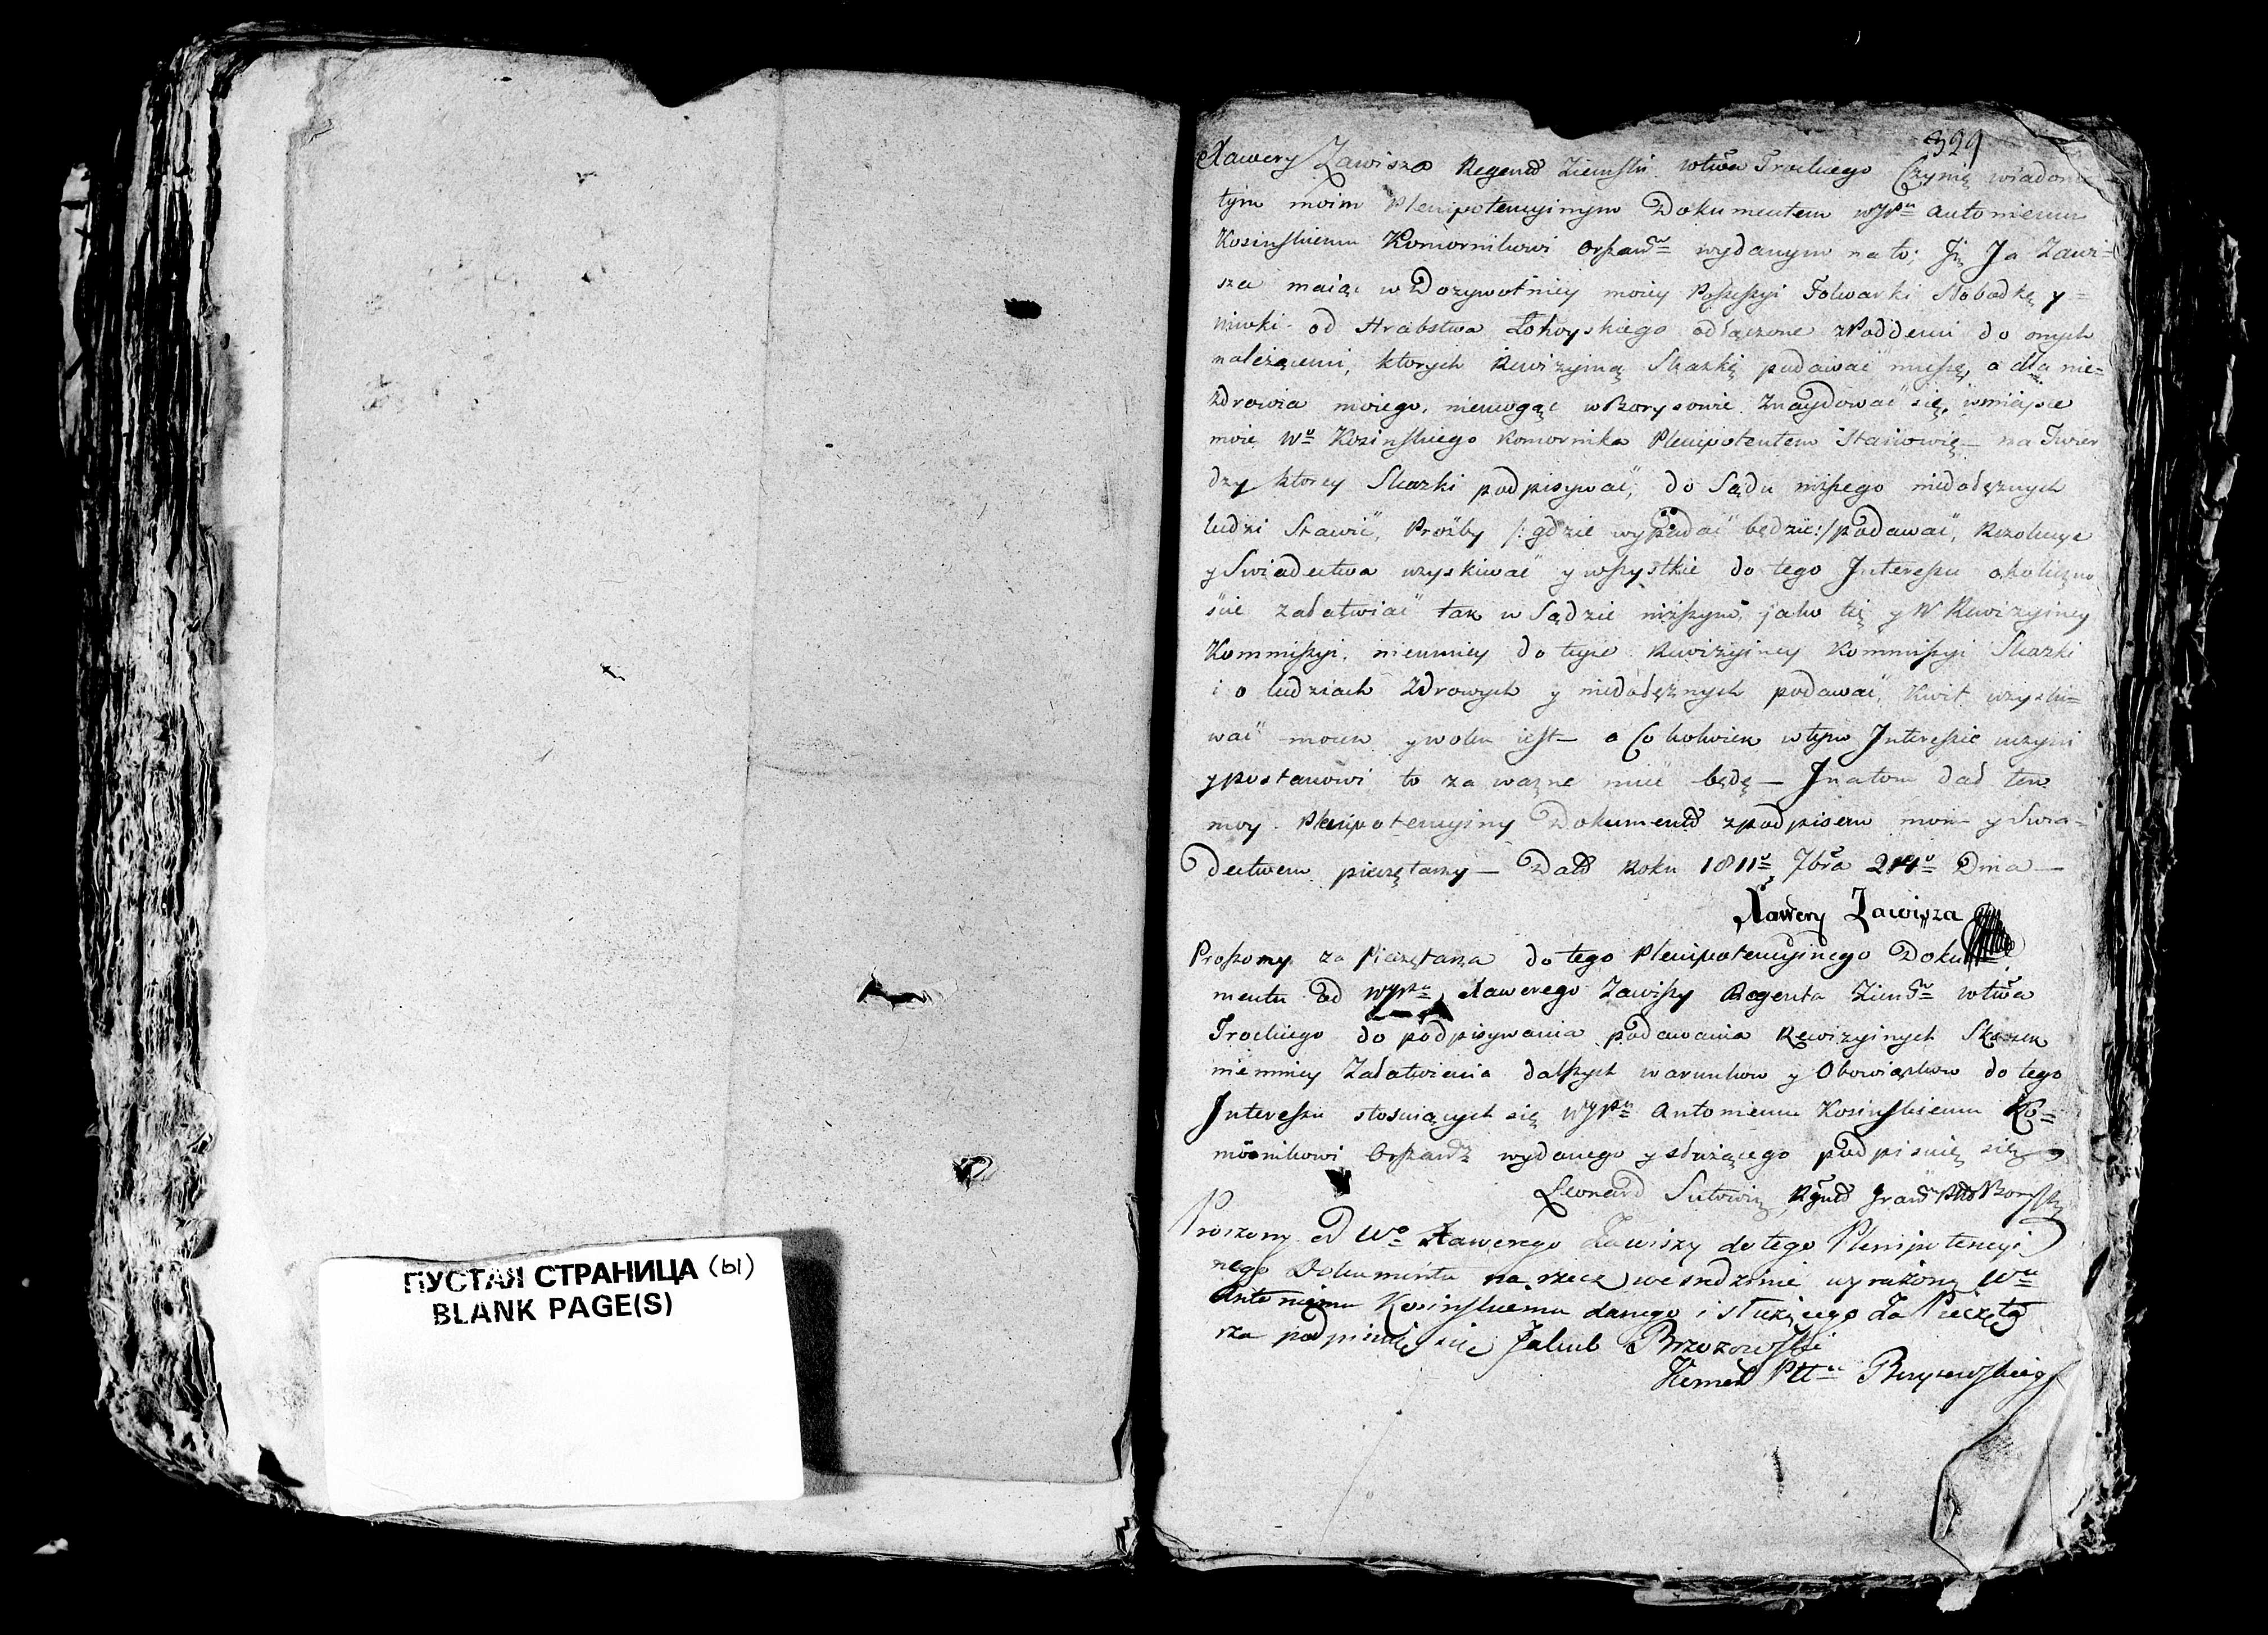 ПУСТАЯ СТРАНИЦА (ы)
BLANK PAGE(S)
329
Xawery Zawisza Regent Ziemski wtwa Trockiego Czynię wiadomo
tym moim Plenipotencyinym Dokumentem WJPu Antoniemu
Kosinskiemu Komornikowi Orszans wydanym na to; Jż Ja Zawi=
sza maiąc w Dozywotniey moiey Possessyi Folwarki Słobodkę y=
niwki od Hrabstwa Łohoyskiego odłączone z Poddemi do onych
należącemi, ktorych Rewizyiną Skazkę podawać muszę, a dla nie=
zdrowia moiego, niemogąc w Borysowie Znaydować się, wmieysce
moie Wo Kosinskiego Komornika Plenipotentem Stanowię — na Twier
dzy ktorey Skazki podpisywać, do Sądu niższego niedołężnych
ludzi Stawić, Prożby /: gdzie wypadać będzie :/ podawać, Rezolucye
y Swiadectwa uzyskiwać y wszystkie do tego Interessu okoliczno
ście załatwiać tak w Sądzie niższym, jako też y W Rewizyiney
Kommissyi, niemniey do teyże Rewizyiney Kommissyi Skazki
i o ludziach Zdrowych y niedołężnych podawać, Kwit uzyski=
wać mocen y wolen iest — a Cokolwiek w tym Interessie uczyni
y postanowi to za ważne mieć będę — Jna tom dał ten
moy Plenipotencyiny Dokument z podpisem moim y Swia=
dectwem pieczętarzy — Datt Roku 1811o 7bra 24o Dnia —
Xawery Zawisza
Proszony za Pieczętarza do tego Plenipotencyinego Doku=
mentu od WJPa Xawerego Zawiszy Regenta Ziems wtwa
Trockiego do podpisywania podawania Rewizyinych Skazek
niemniey Załatwienia dalszych warunkow y Obowiązkow do tego
Interessu stosuiących się WJPu Antoniemu Kosinskiemu Ko=
mornikowi Orszans wydanego y służącego podpisuię się
Leonard
Proszony od Wo Xawerego Zawiszy do tego Plenipotencyi
nego Dokumentu na rzecz we srzodzinie wyrażoną Wu
Antoniemu Kosinskiemu danego i służącego Za Pieczęta
rza podpisuię się Jakub Brzozowski
Ptu Borysowskiego